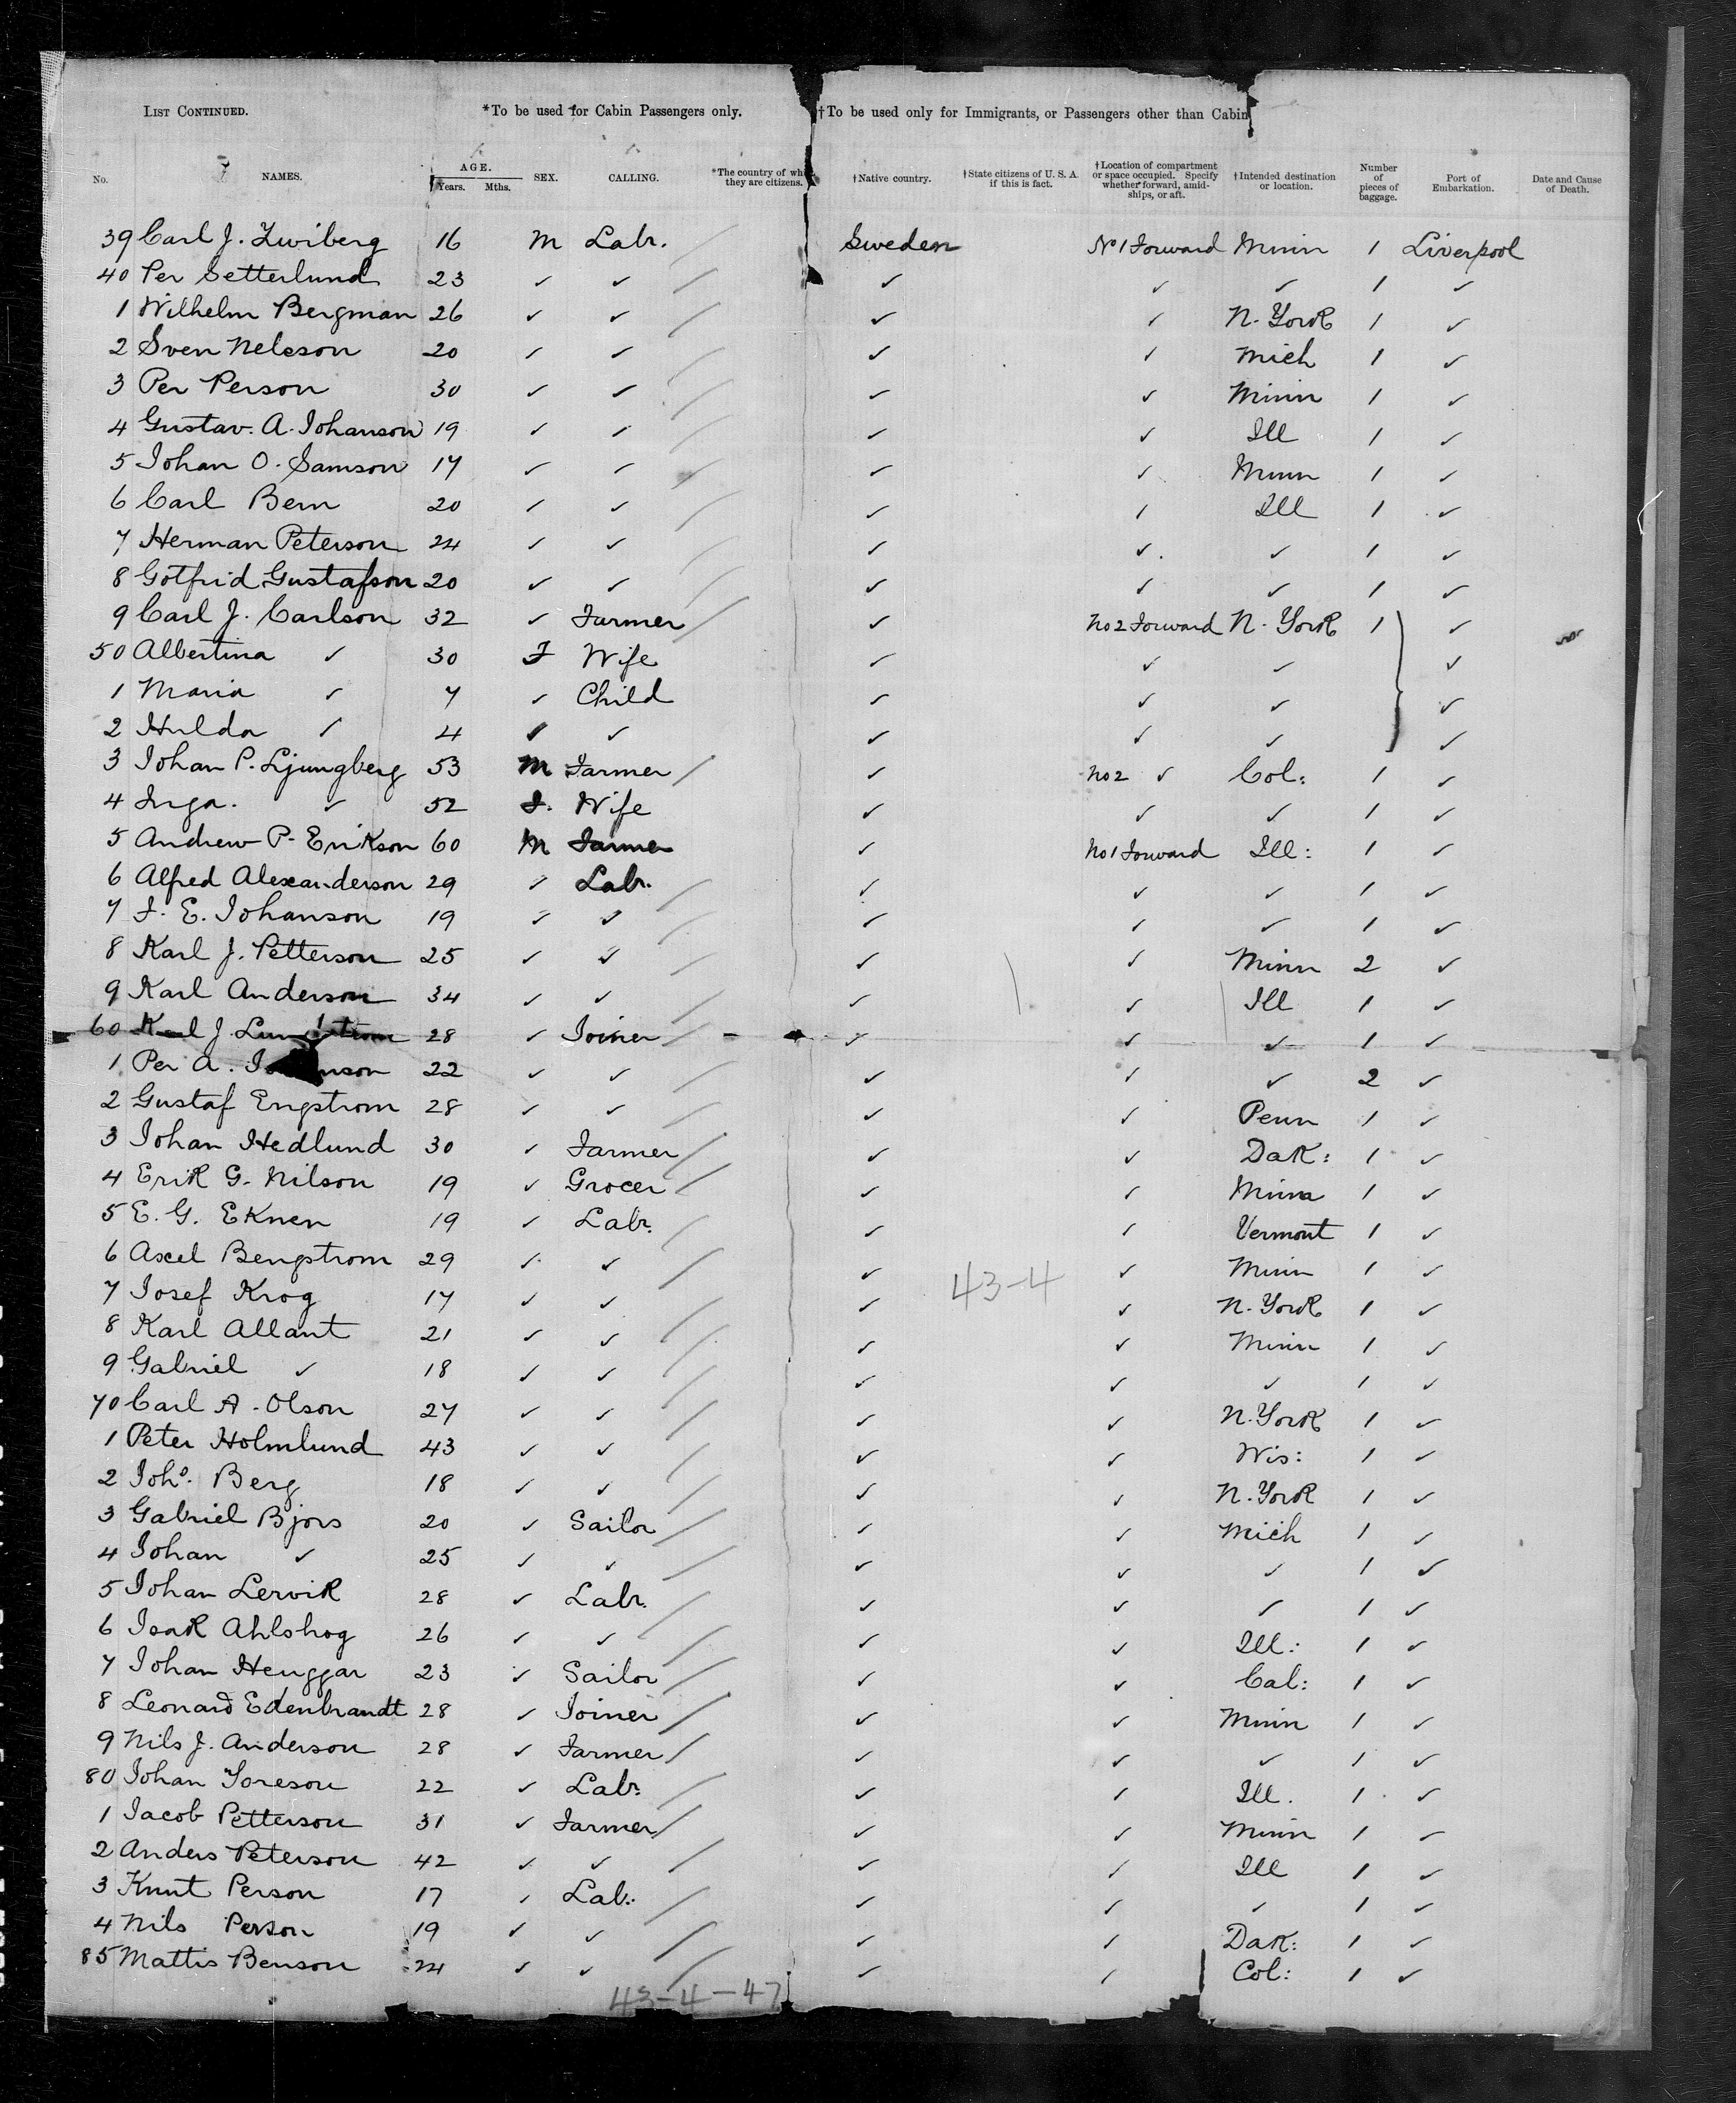 LIST CONTINUED. *To be used for Cabin Passengers only. †To be used only for Immigrants, or Passengers other than Cabin
No. NAMES. AGE. Years. Mths. SEX. CALLING. *The country of wh they are citizens. †Native country. †State citizens of U. S. A. if this is fact. †Location of compartment or space occupied. Specify whether forward, amidships, or aft. †Intended destination or location. Number of pieces of baggage. Port of Embarkation. Date and Cause of Death.
39 Carl J. Zwiberg 16 M Labr. Sweden No 1 Forward Minn 1 Liverpool
40 Per Setterlund 23 ✓ ✓ ✓ ✓ ✓ 1 ✓
1 Wilhelm Bergman 26 ✓ ✓ ✓ ✓ N. York 1 ✓
2 Sven Nelsson 20 ✓ ✓ ✓ ✓ Mich 1 ✓
3 Per Person 30 ✓ ✓ ✓ ✓ Minn 1 ✓
4 Gustav. A. Johanson 19 ✓ ✓ ✓ ✓ Ill 1 ✓
5 Johan O. Samson 17 ✓ ✓ ✓ ✓ Minn 1 ✓
6 Carl Bern 20 ✓ ✓ ✓ ✓ Ill 1 ✓
7 Herman Peterson 24 ✓ ✓ ✓ ✓ ✓ 1 ✓
8 Gotfrid Gustafson 20 ✓ ✓ ✓ ✓ ✓ 1 ✓
9 Carl J. Carlson 32 ✓ Farmer ✓ No 2 Forward N. York 1 ✓
50 Albertina ✓ 30 F Wife ✓ ✓ ✓ ✓
1 Maria ✓ 7 ✓ Child ✓ ✓ ✓ ✓
2 Hulda ✓ 4 ✓ ✓ ✓ ✓ ✓ ✓
3 Johan P. Ljungberg 53 M Farmer ✓ No 2 ✓ Col: 1 ✓
4 Inga. ✓ 52 F. Wife ✓ ✓ ✓ 1 ✓
5 Andrew P. Erikson 60 M Farmer ✓ No 1 Forward Ill: 1 ✓
6 Alfred Alexanderson 29 ✓ Labr. ✓ ✓ ✓ 1 ✓
7 F. E. Johanson 19 ✓ ✓ ✓ ✓ ✓ 1 ✓
8 Karl J. Petterson 25 ✓ ✓ ✓ ✓ Minn 2 ✓
9 Karl Anderson 34 ✓ ✓ ✓ ✓ Ill 1 ✓
60 J. 28 ✓ Joiner ✓ ✓ ✓ 1 ✓
1 Per A. 22 ✓ ✓ ✓ ✓ ✓ 2 ✓
2 Gustaf Engstrom 28 ✓ ✓ ✓ ✓ Penn 1 ✓
3 Johan Hedlund 30 ✓ Farmer ✓ ✓ Dak: 1 ✓
4 Erik G. Nilson 19 ✓ Grocer ✓ ✓ Minn 1 ✓
5 E. G. Eknen 19 ✓ Labr. ✓ ✓ Vermont 1 ✓
6 Axel Bengstrom 29 ✓ ✓ ✓ 43-4 ✓ Minn 1 ✓
7 Josef Krog 17 ✓ ✓ ✓ ✓ N. York 1 ✓
8 Karl Allant 21 ✓ ✓ ✓ ✓ Minn 1 ✓
9 Gabriel ✓ 18 ✓ ✓ ✓ ✓ ✓ 1 ✓
70 Carl A. Olson 27 ✓ ✓ ✓ ✓ N. York 1 ✓
1 Peter Holmlund 43 ✓ ✓ ✓ ✓ Wis: 1 ✓
2 Joho. Berg 18 ✓ ✓ ✓ ✓ N. York 1 ✓
3 Gabriel Bjors 20 ✓ Sailor ✓ ✓ Mich 1 ✓
4 Johan ✓ 25 ✓ ✓ ✓ ✓ ✓ 1 ✓
5 Johan Lervik 28 ✓ Labr. ✓ ✓ ✓ 1 ✓
6 Isak Ahlshog 26 ✓ ✓ ✓ ✓ Ill: 1 ✓
7 Johan Henggar 23 ✓ Sailor ✓ ✓ Cal: 1 ✓
8 Leonard Edenbrandt 28 ✓ Joiner ✓ ✓ Minn 1 ✓
9 Nils J. Anderson 28 ✓ Farmer ✓ ✓ ✓ 1 ✓
80 Johan Toreson 22 ✓ Labr. ✓ ✓ Ill. 1 ✓
1 Jacob Petterson 31 ✓ Farmer ✓ ✓ Minn 1 ✓
2 Anders Peterson 42 ✓ ✓ ✓ ✓ Ill 1 ✓
3 Knut Person 17 ✓ Lab: ✓ ✓ ✓ 1 ✓
4 Nils Person 19 ✓ ✓ ✓ ✓ Dak: 1 ✓
85 Mattis Benson 24 ✓ ✓ ✓ ✓ Col: 1 ✓
43-4-47